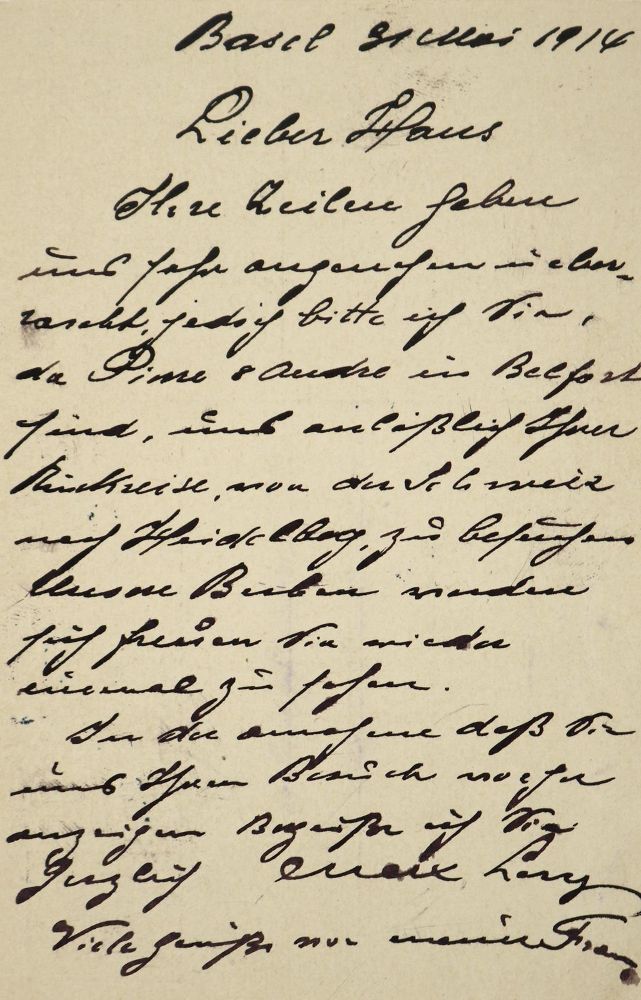 Basel 31 Mai 1914
Lieber Hans
Ihre Zeilen haben
uns sehr angenehm ueber-
rascht, jedoch bitte ich Sie,
da Pierre & André in Belfort
sind, uns anläßlich Ihrer
Rückreise, von der Schweiz
nach Heidelberg, zu besuchen
Unsere Buben werden
sich freuen Sie wieder
einmal zu sehen.
In der annahme daß Sie
uns Ihren Besuch vorher
anzeigen Begrüße ich Sie
Herzlich Max Levy
Viele Grüße von meiner Frau